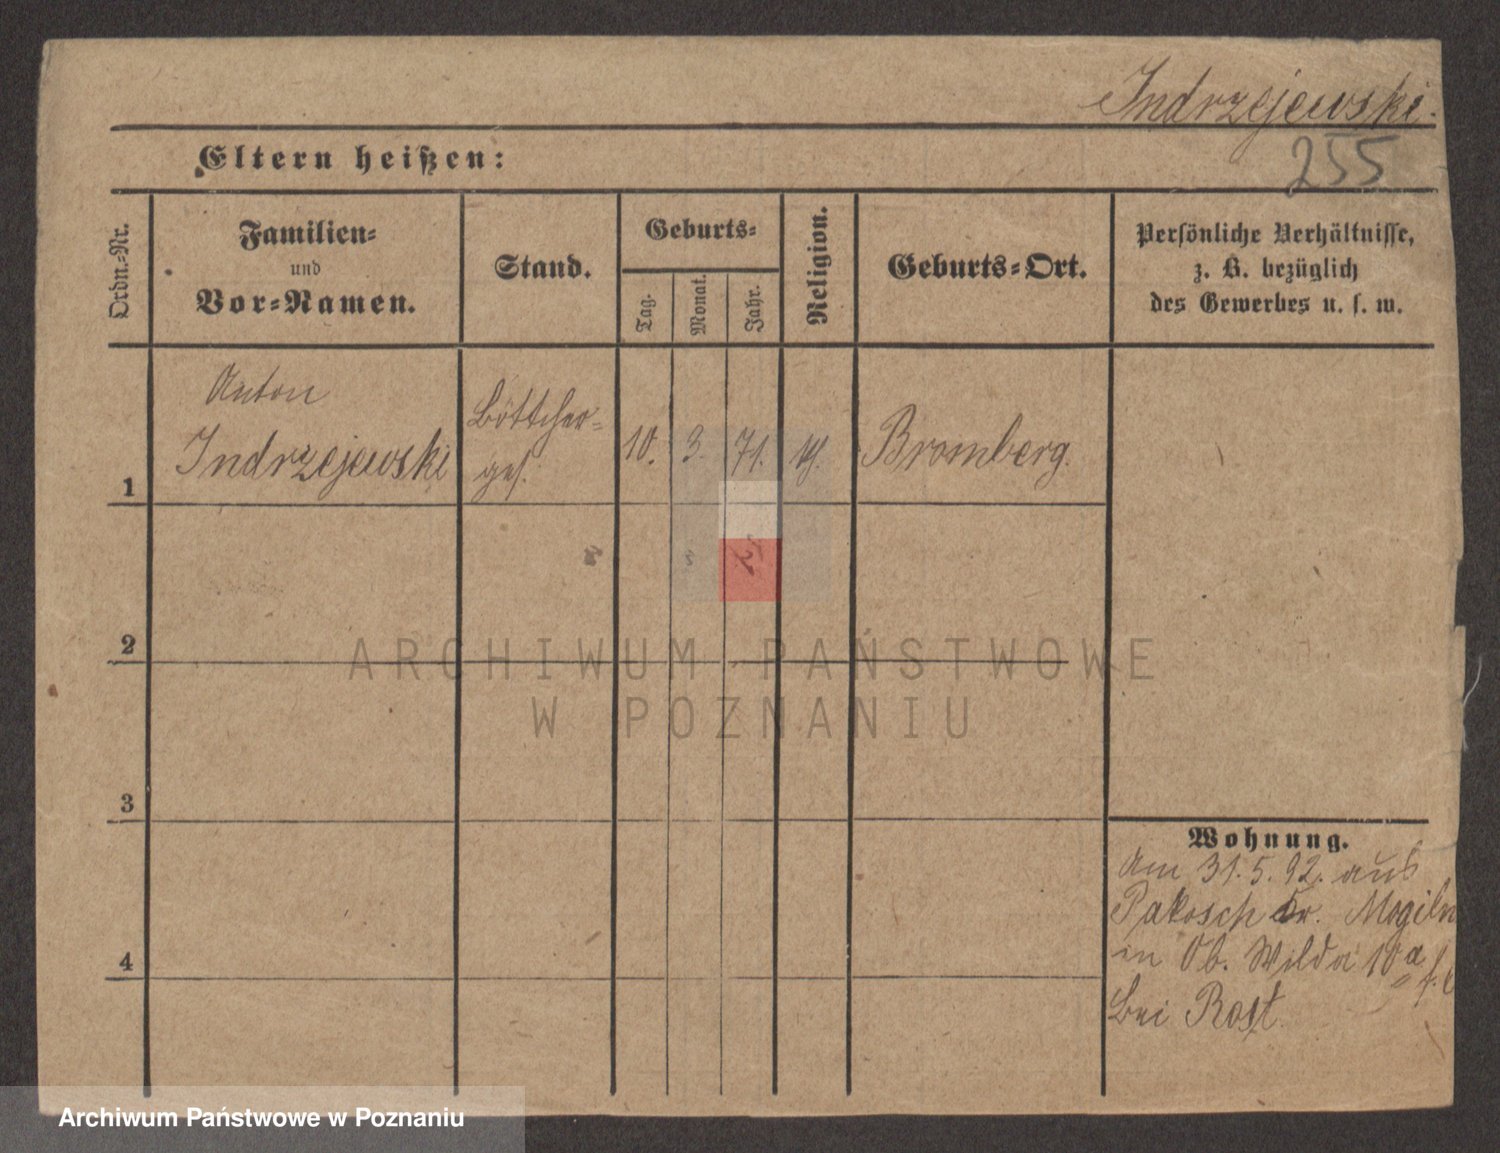 Indrzejewski.
255
Eltern heißen:
Ordn.-Nr.
Familien-
und
Vor-Namen.
Stand.
Geburts-
Tag.
Monat.
Jahr.
Religion.
Geburts-Ort.
Persönliche Verhältnisse,
z. B. bezüglich
des Gewerbes u. s. w.
1
Anton
Indrzejewski
Böttcher-
ges.
10.
3.
71.
Bromberg.
2
ARCHIWUM PAŃSTWOWE
W POZNANIU
3
4
Wohnung.
Am 31.5.92. aus
Pakosch Kr. Mogiln
in Ob. Wilda 10a
bei Rost.
Archiwum Państwowe w Poznaniu